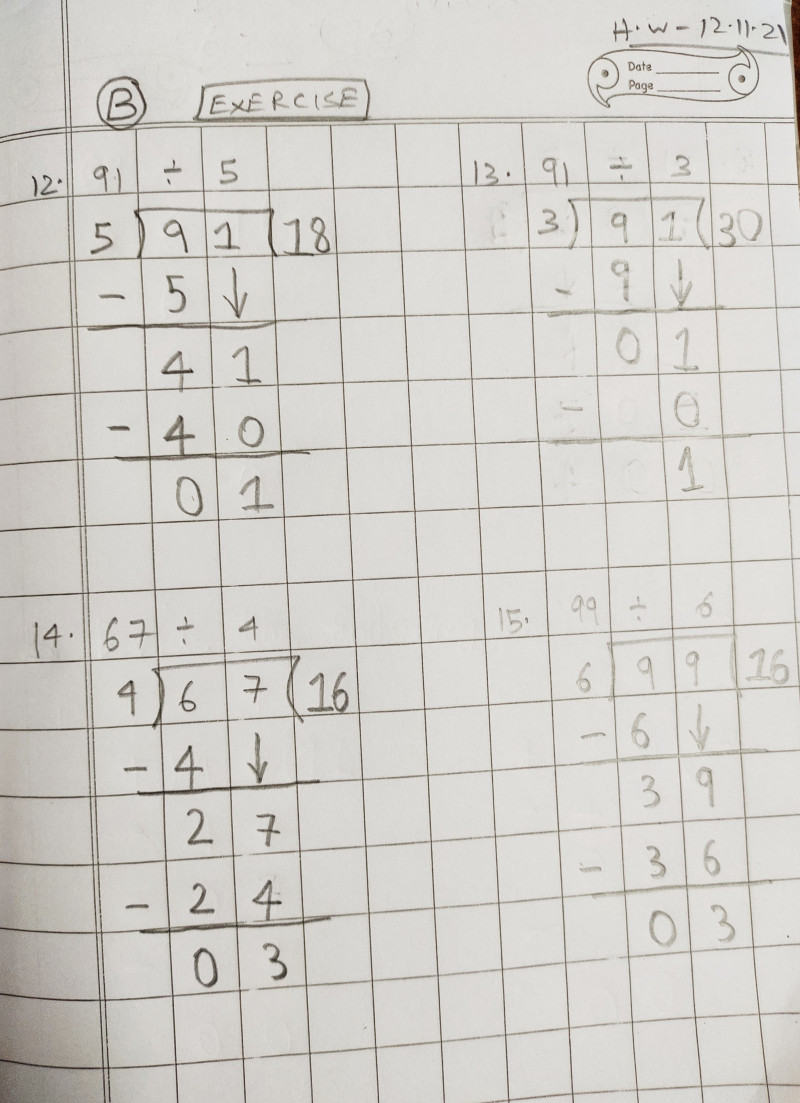 H.W - 12.11.21
Date
Page
B EXERCISE
12. 91 ÷ 5
5) 91 (18
- 5 ↓
4 1
- 4 0
0 1
13. 91 ÷ 3
3) 91 (30
- 9 ↓
0 1
- 0
1
14. 67 ÷ 4
4) 67 (16
- 4 ↓
2 7
- 2 4
0 3
15. 99 ÷ 6
6 | 99 | 16
- 6 ↓
3 9
- 3 6
0 3